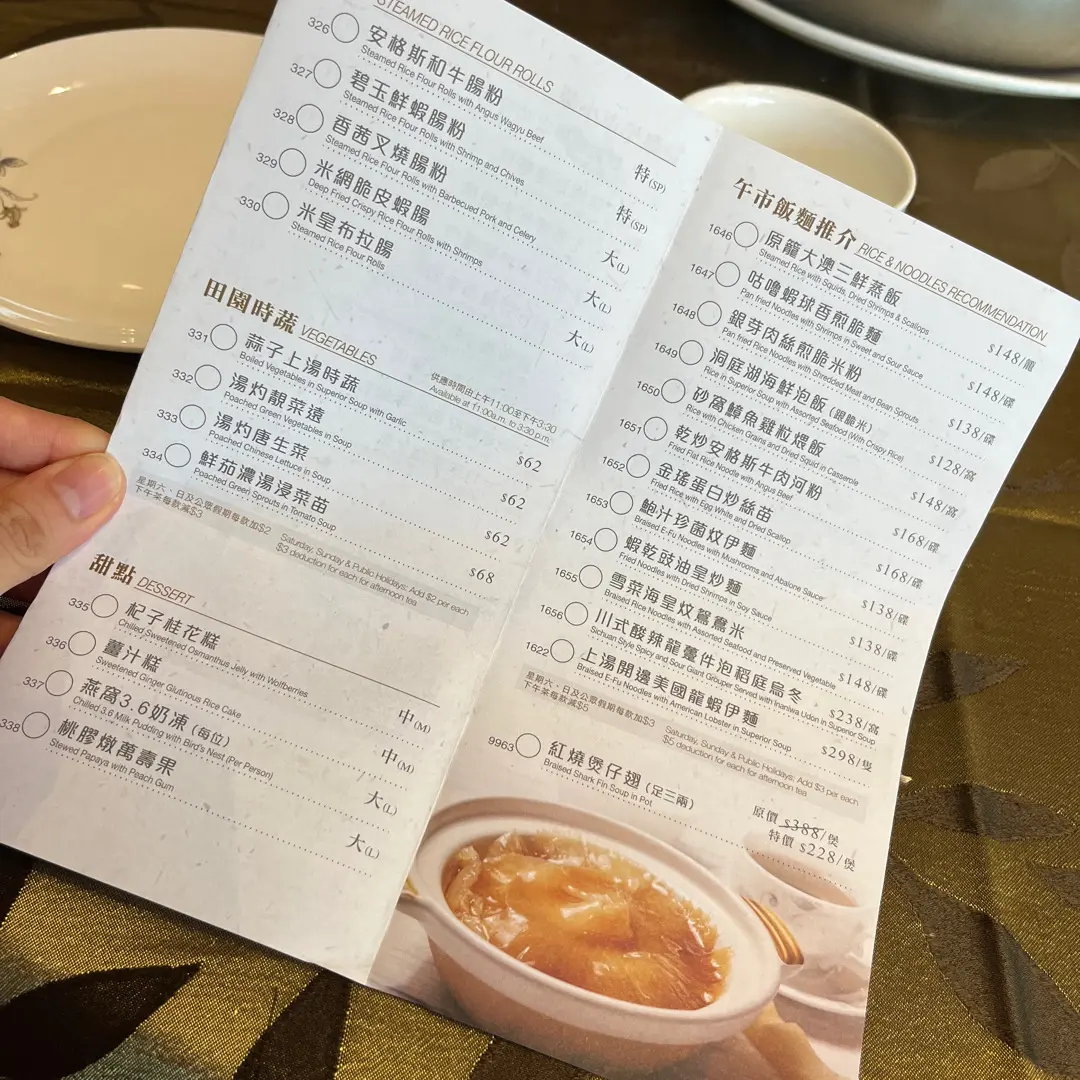 STEAMED RICE FLOUR ROLLS
326 安格斯和牛腸粉 特(SP)
Steamed Rice Flour Rolls with Angus Wagyu Beef
327 碧玉鮮蝦腸粉 特(SP)
Steamed Rice Flour Rolls with Shrimp and Chives
328 香茜叉燒腸粉 大(L)
Steamed Rice Flour Rolls with Barbecued Pork and Celery
329 米網脆皮蝦腸 大(L)
Deep Fried Crispy Rice Flour Rolls with Shrimps
330 米皇布拉腸 大(L)
Steamed Rice Flour Rolls
田園時蔬 VEGETABLES
供應時間由上午11:00至下午3:30
Available at 11:00a.m. to 3:30 p.m.
331 蒜子上湯時蔬 $62
Boiled Vegetables in Superior Soup with Garlic
332 湯灼靚菜遠 $62
Poached Green Vegetables in Soup
333 湯灼唐生菜 $62
Poached Chinese Lettuce in Soup
334 鮮茄濃湯浸菜苗 $68
Poached Green Sprouts in Tomato Soup
星期六、日及公眾假期每款加$2
下午茶每款減$3
Saturday, Sunday & Public Holidays: Add $2 per each
$3 deduction for each for afternoon tea
甜點 DESSERT
335 杞子桂花糕 中(M)
Chilled Sweetened Osmanthus Jelly with Wolfberries
336 薑汁糕 中(M)
Sweetened Ginger Glutinous Rice Cake
337 燕窩3.6奶凍(每位) 大(L)
Chilled 3.6 Milk Pudding with Bird's Nest (Per Person)
338 桃膠燉萬壽果 大(L)
Stewed Papaya with Peach Gum
午市飯麵推介 RICE & NOODLES RECOMMENDATION
1646 原籠大澳三鮮蒸飯 $148/籠
Steamed Rice with Squids, Dried Shrimps & Scallops
1647 咕嚕蝦球香煎脆麵 $148/碟
Pan fried Noodles with Shrimps in Sweet and Sour Sauce
1648 銀芽肉絲煎脆米粉 $138/碟
Pan fried Rice Noodles with Shredded Meat and Bean Sprouts
1649 洞庭湖海鮮泡飯(跟脆米) $128/窩
Rice in Superior Soup with Assorted Seafood (With Crispy Rice)
1650 砂窩鱆魚雞粒煨飯 $148/窩
Rice with Chicken Grains and Dried Squid in Casserole
1651 乾炒安格斯牛肉河粉 $168/碟
Fried Flat Rice Noodle with Angus Beef
1652 金瑤蛋白炒絲苗 $168/碟
Fried Rice with Egg White and Dried Scallop
1653 鮑汁珍菌炆伊麵 $138/碟
Braised E-Fu Noodles with Mushrooms and Abalone Sauce
1654 蝦乾豉油皇炒麵 $138/碟
Fried Noodles with Dried Shrimps in Soy Sauce
1655 雪菜海皇炆鴛鴦米 $148/碟
Braised Rice Noodles with Assorted Seafood and Preserved Vegetable
1656 川式酸辣龍躉件泡稻庭烏冬 $238/窩
Sichuan Style Spicy and Sour Giant Grouper Served with Inaniwa Udon in Superior Soup
1622 上湯開邊美國龍蝦伊麵 $298/隻
Braised E-Fu Noodles with American Lobster in Superior Soup
星期六、日及公眾假期每款加$3
下午茶每款減$5
Saturday, Sunday & Public Holidays: Add $3 per each
$5 deduction for each for afternoon tea
9963 紅燒煲仔翅(足三兩)
Braised Shark Fin Soup in Pot
原價 $388/煲
特價 $228/煲